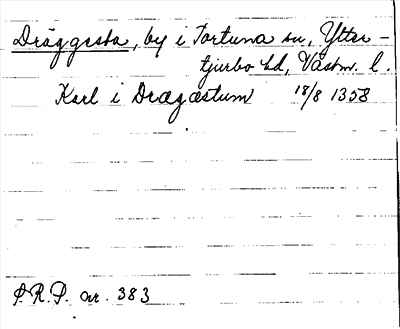 Dräggesta, by i Tortuna sn, Ytter-
tjurbo hd, Västm. l.
Karl i Drægæstum 18/8 1358
S.R.P. nr. 383